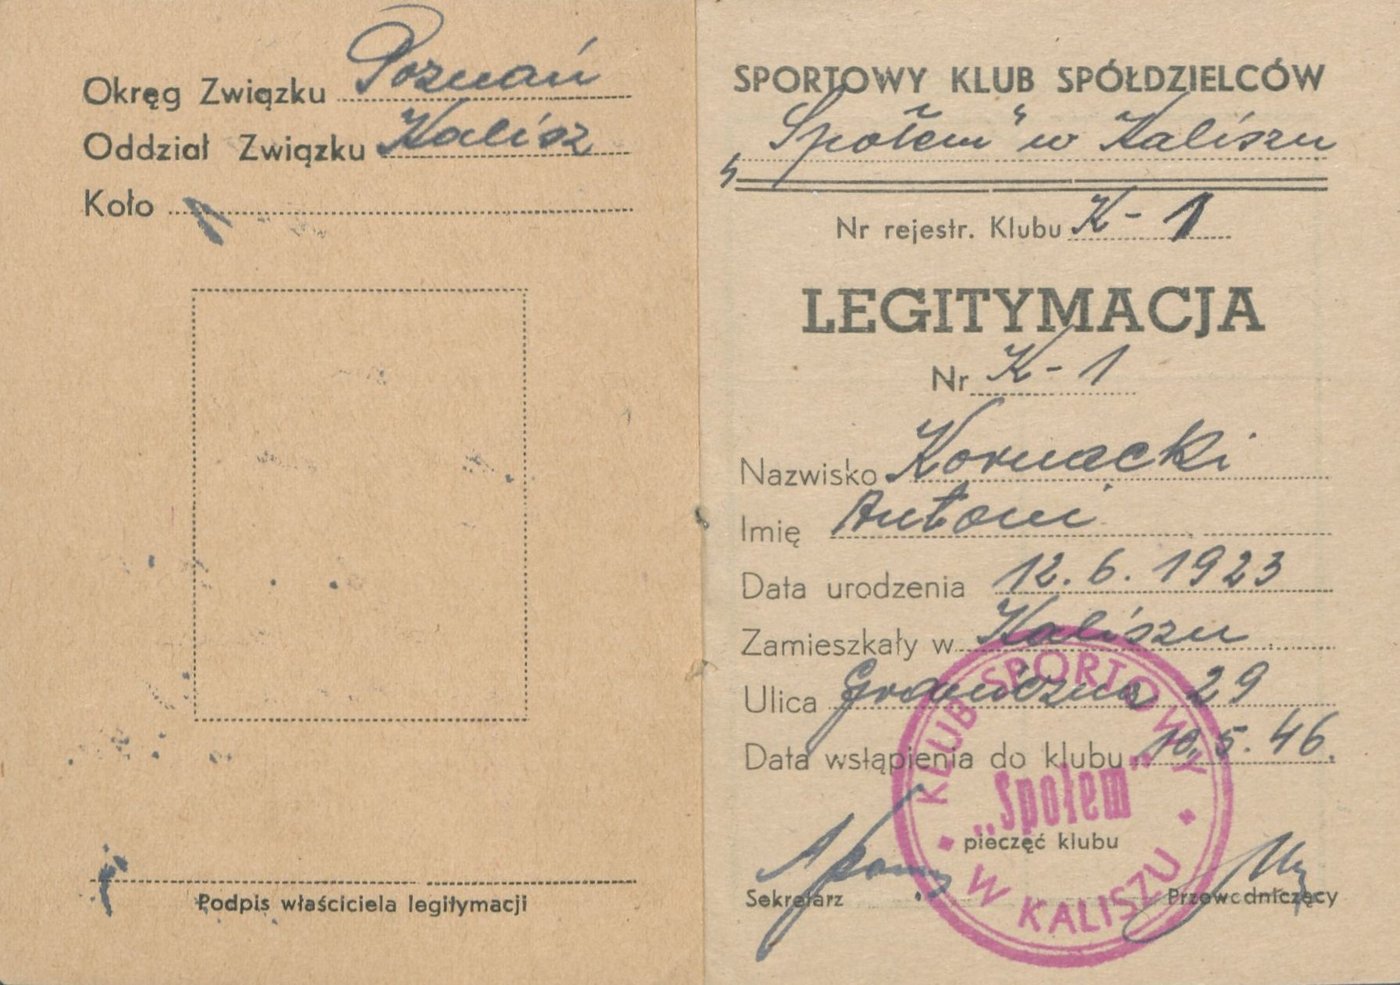 Okręg Związku Poznań
Oddział Związku Kalisz
Koło
Podpis właściciela legitymacji
SPORTOWY KLUB SPÓŁDZIELCÓW
„Społem" w Kaliszu
Nr rejestr. Klubu K-1
LEGITYMACJA
Nr K-1
Nazwisko Kornacki
Imię Antoni
Data urodzenia 12.6.1923
Zamieszkały w Kaliszu
Ulica Graniczna 29
Data wstąpienia do klubu 10.5.46.
KLUB SPORTOWY
„Społem"
W KALISZU
pieczęć klubu
Sekretarz
Przewodniczący